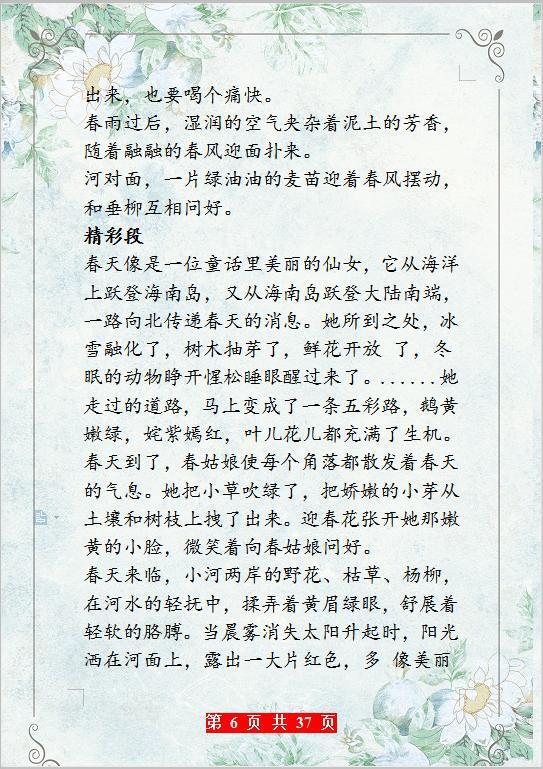 出来，也要喝个痛快。
春雨过后，湿润的空气夹杂着泥土的芳香，
随着融融的春风迎面扑来。
河对面，一片绿油油的麦苗迎着春风摆动，
和垂柳互相问好。
精彩段
春天像是一位童话里美丽的仙女，它从海洋
上跃登海南岛，又从海南岛跃登大陆南端，
一路向北传递春天的消息。她所到之处，冰
雪融化了，树木抽芽了，鲜花开放 了，冬
眠的动物睁开惺松睡眼醒过来了。......她
走过的道路，马上变成了一条五彩路，鹅黄
嫩绿，姹紫嫣红，叶儿花儿都充满了生机。
春天到了，春姑娘使每个角落都散发着春天
的气息。她把小草吹绿了，把娇嫩的小芽从
土壤和树枝上拽了出来。迎春花张开她那嫩
黄的小脸，微笑着向春姑娘问好。
春天来临，小河两岸的野花、枯草、杨柳，
在河水的轻抚中，揉弄着黄眉绿眼，舒展着
轻软的胳膊。当晨雾消失太阳升起时，阳光
洒在河面上，露出一大片红色，多 像美丽
第 6 页 共 37 页